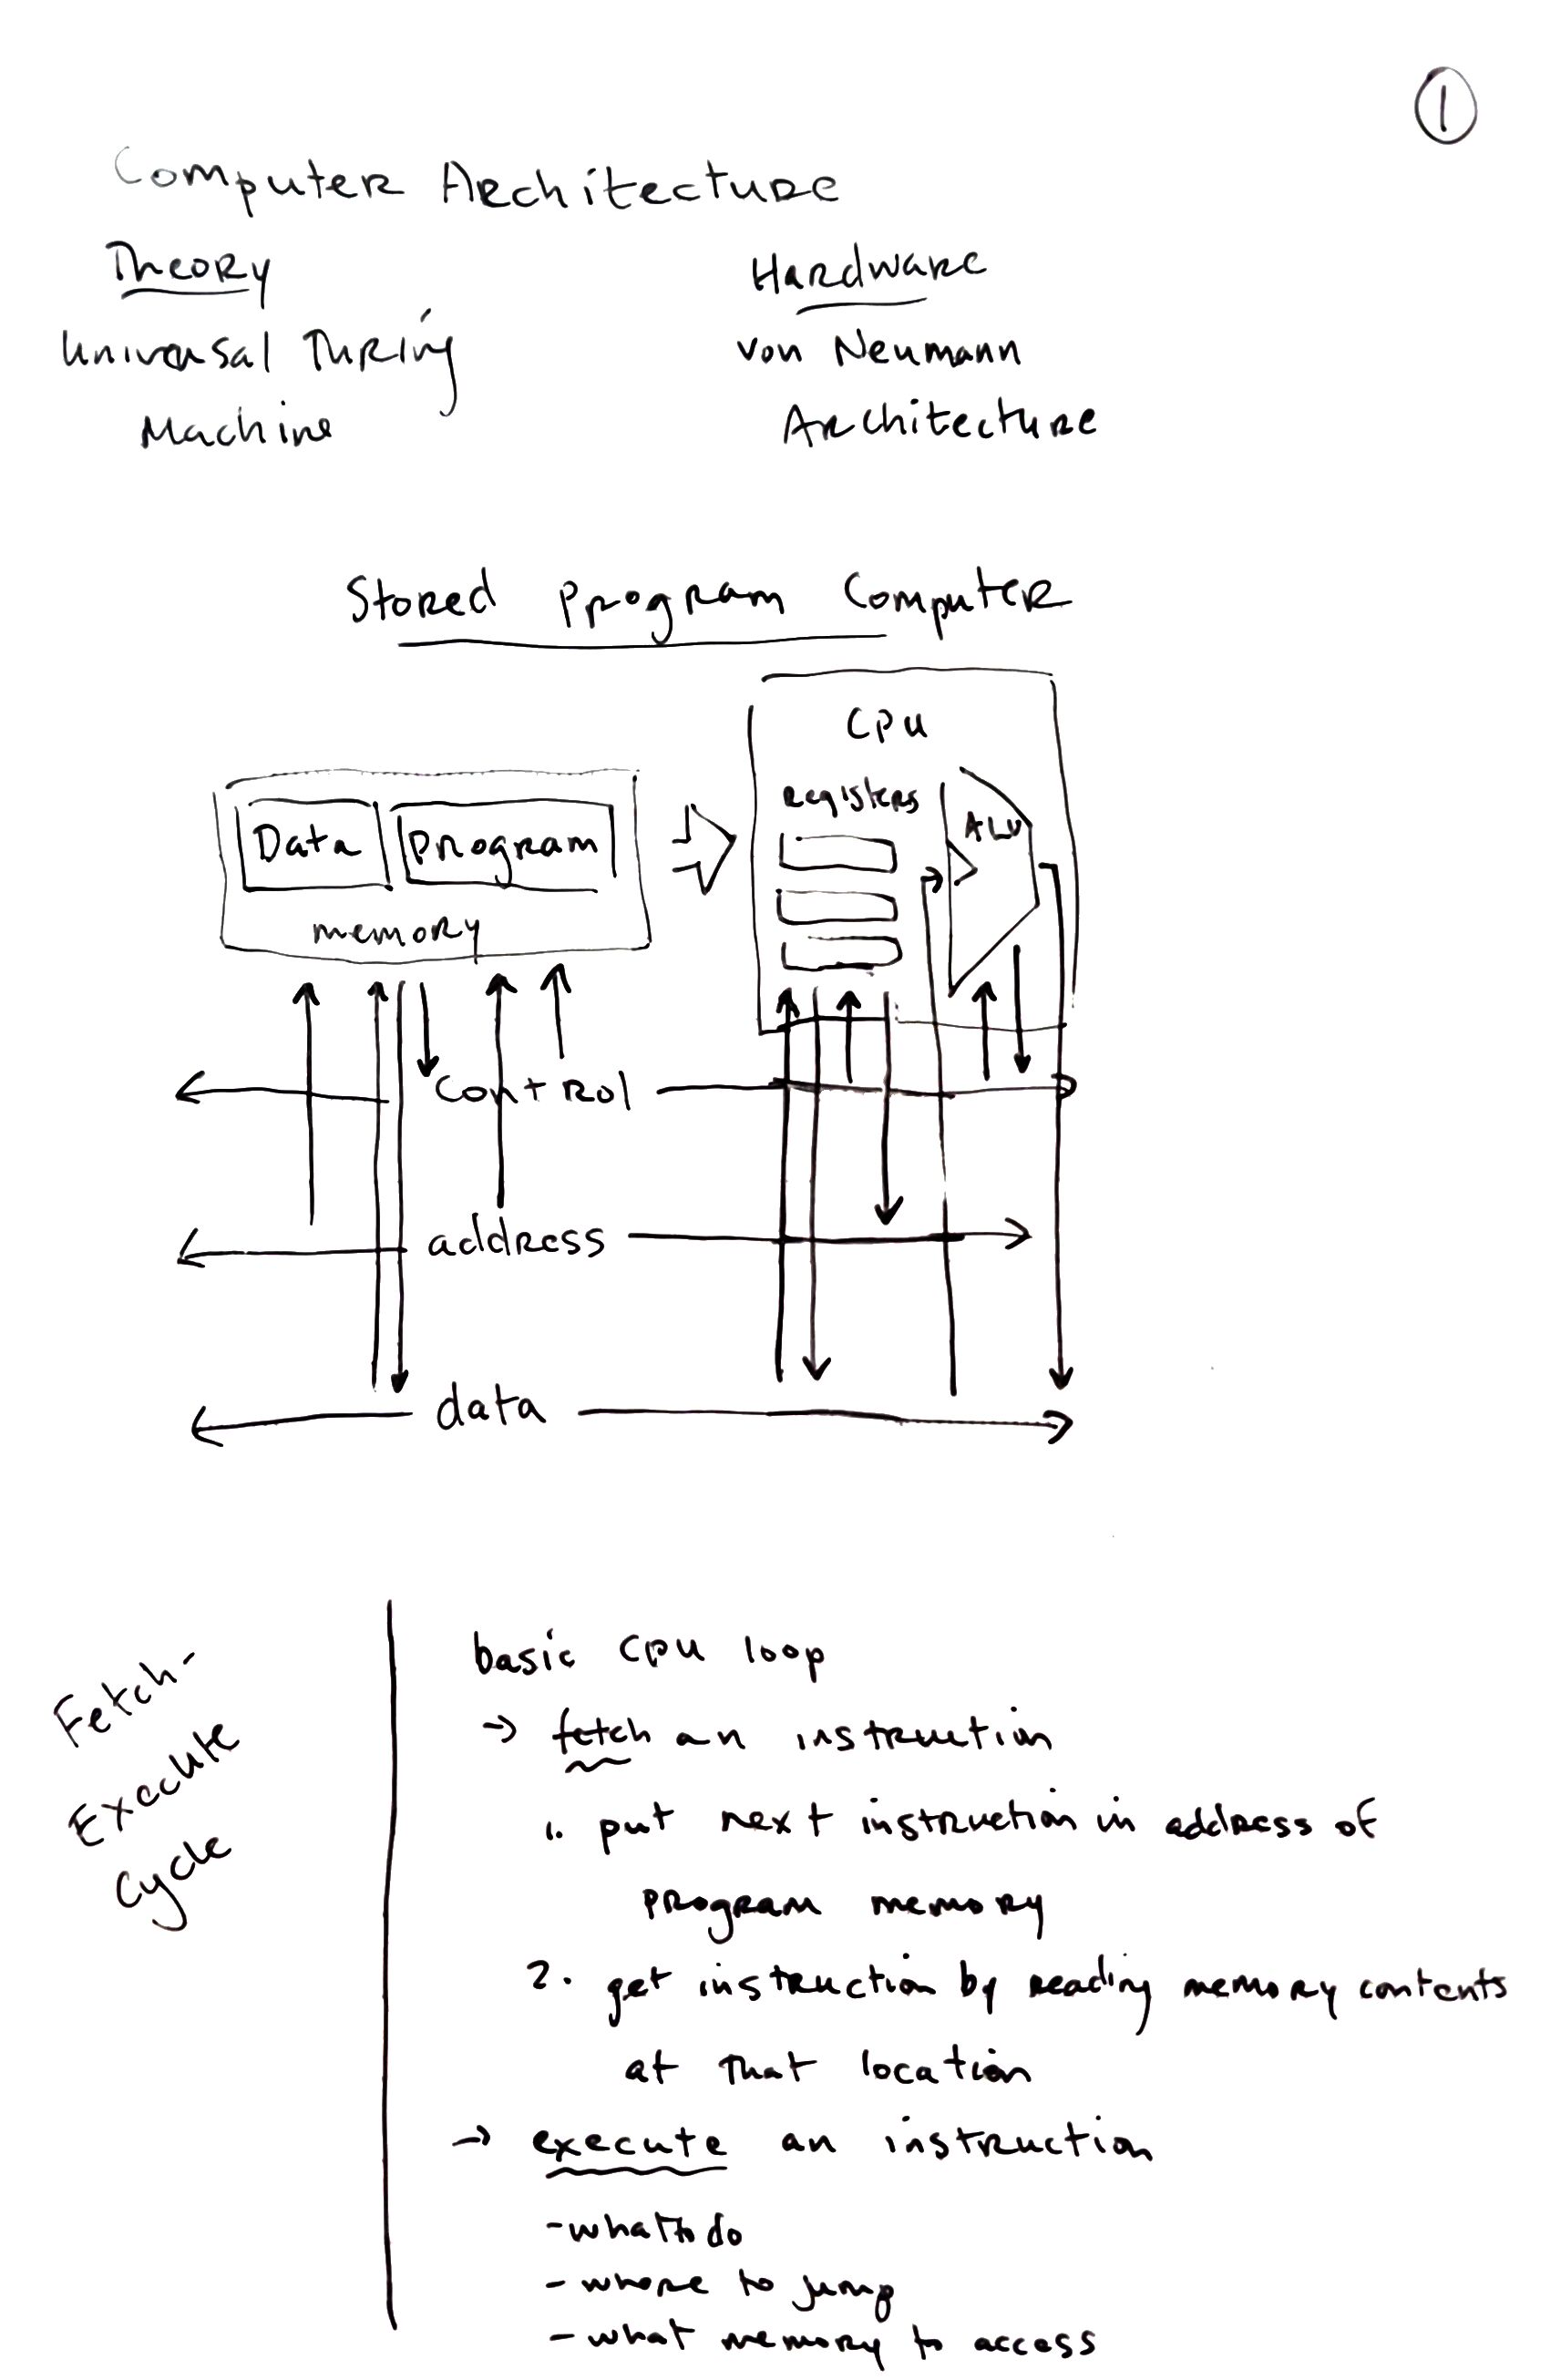 1
Computer Architecture
Theory
Hardware
Universal Turing
Machine
von Neumann
Architecture
Stored Program Computer
CPU
registers
ALU
Data
Program
memory
Control
address
data
Fetch-
Execute
Cycle
basic CPU loop
→ fetch an instruction
1. put next instruction in address of
program memory
2. get instruction by reading memory contents
at that location
→ execute an instruction
- what to do
- where to jump
- what memory to access